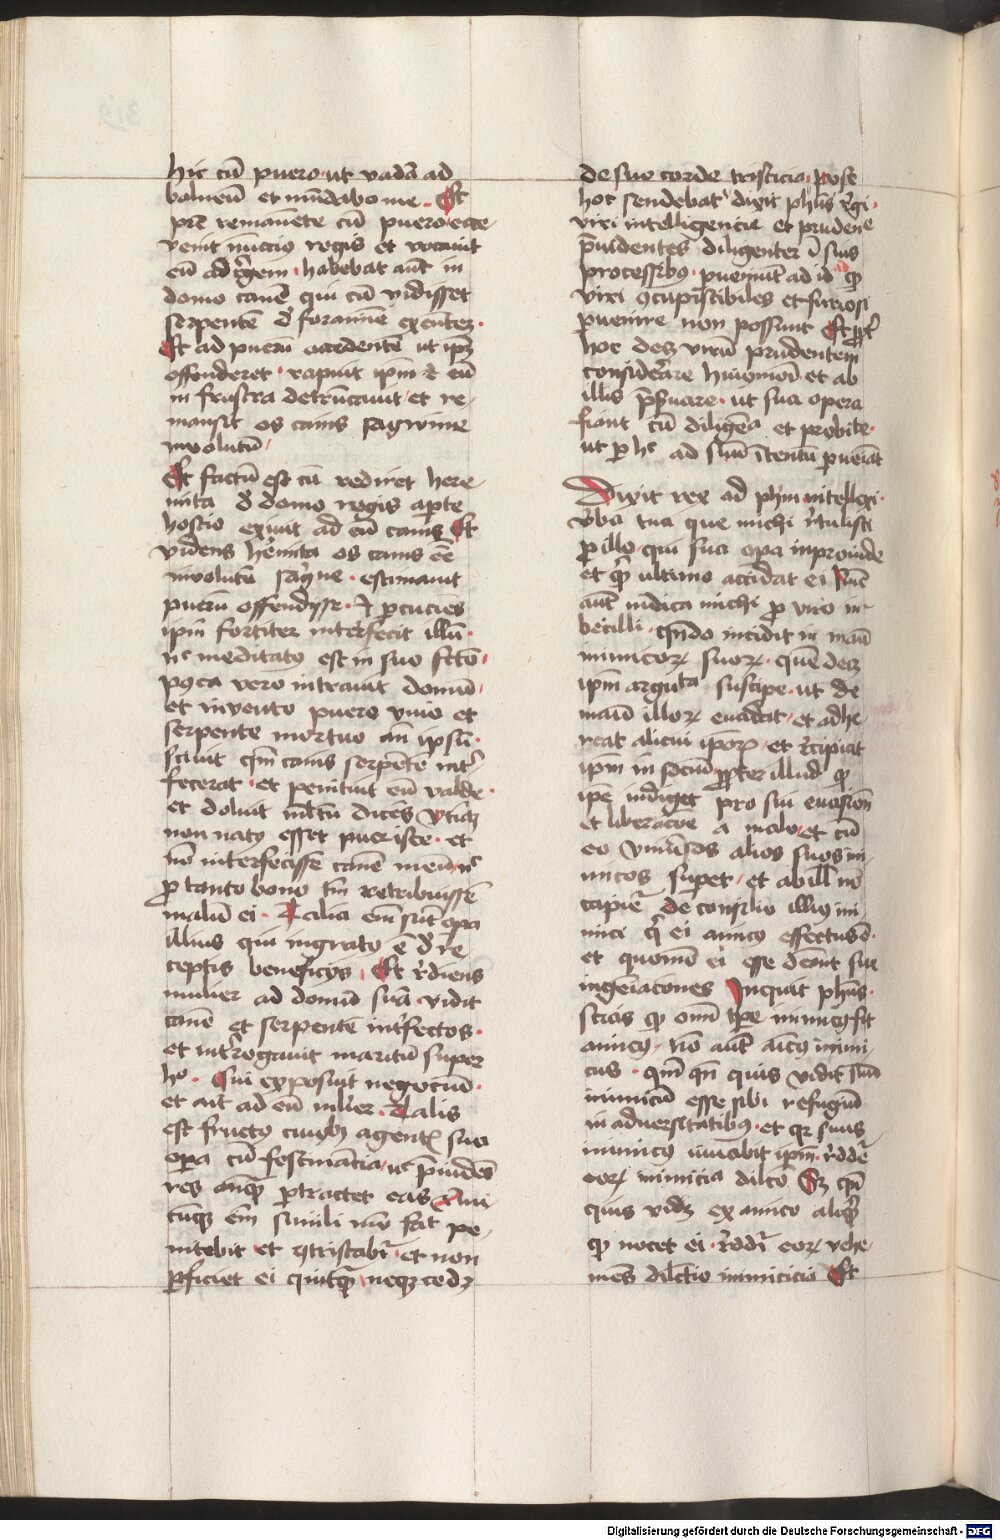 hic cū puero ut vadā ad
balneū et mūdabo me. Et
pr̄e remanēte cū puero ecce
venit nūccius regis et vocavit
eū ad r̄gem. habebat aūt in
domo canē qui cū vidisset
serpentē d̄ foramine exeūtez.
Et ad puerū accedentē ut ipz̄
offenderet. rapuit ipm̄ et eū
in frustra detrūcavit et re-
mansit os canis sagwine
involutū
Et factū est cū rediret here-
mita d̄ domo regis apto
hostio exivit ad eū canis Et
videns h̄emita os canis eē
involutū sāgne. estimavit
puerū offendisse. et p̄cuciēs
ipm̄ fortiter interfecit illū.
nᶜ meditatus est in suo fc̄to
postea vero intravit domū
et invento puero vivo et
serpente mortuo an̄ ipsū.
scivit qm̄ canis serpētē int̄-
fecerat. et penituit eū valde.
et doluit ml̄tū dicēs Vtinā
non natus esset puer iste. et
nō interfecissē canē meū nᶜ
p̄ tanto bono tm̄ retribuissē
malū ei. Talia em̄ sūt opa
illius qui ingratus ē d̄ re-
ceptis beneficijs. Et r̄diens
mulier ad domū suā vidit
canē et serpentē int̄fectos.
et int̄rogavit maritū super
hᵒ. Cui exposuit negociū.
et ait ad eū mlier. Talis
est fructus cuiuslibz agentis sua
opera cū festinācia nᶜ p̄videns
res anq̄ ptractet eas Qui-
cūqz em̄ simili mō facit pe-
nitebit et cōtristabit̄ et non
p̄ficiet ei quitq̄ neqz cedz
de suo corde tristicia. post
hoc sendebar dixit phūs r̄gi.
viri intelligencie et prudenc̄e
p̄videntes diligenter ī suis
processibus. pueniūt ad id qᵒ
viri ɔcupiscibiles et furiosi
p̄venire non possunt Et ppt̄
hoc dez virū prudentem
considerare huiusmodi et ab
illis p̄servare. ut sua opera
fiant cū diligēᵃ et probite.
ut p hᶜ ad suū ītentū pveiat
Dixit rex ad phm̄ intellexi.
v̄ba tua que michi r̄tulisti
p illo qui sua opa inprovide
et qd̄ ultimo accidat ei Nūc
aūt iudica michi p̄ viro in-
becilli. qn̄do incidit in manū
inimicorz suorz. quē dez
ipm̄ arguta suscipe. ut de
manū illorz evadat et adhe-
reat alicui ipsorz et r̄cipiat
ipm in sociū ppter illud qᵒ
ipē indiget pro sui evasiōn
et liberacōe a malo et cū
eo Vniūsos alios suos ini-
micos supet et ab illis nō
capiet̄ de consilio illius ini-
mici q̄ ei amicus effectus ē.
et quomō ei esse debent sue
ingeiacones Inquit phūs.
scias qᵒ omni tpe inimicus sit
amicus. nō aūt amicus inimi-
cus. qm̄ qn̄ quis vidit suū
inimicū esse sibi refugiū
in adversitatibus. et qz suus
inimicus iuvabit ipm̄. r̄ddet̄
eorz inimicia dilcō Sz cū
quis vidz ex amico aliqd̄
qᵒ nocet ei. r̄ddit̄ eorz vehe-
mēs dilectio inimicicia Et
Digitalisierung gefördert durch die Deutsche Forschungsgemeinschaft - DFG